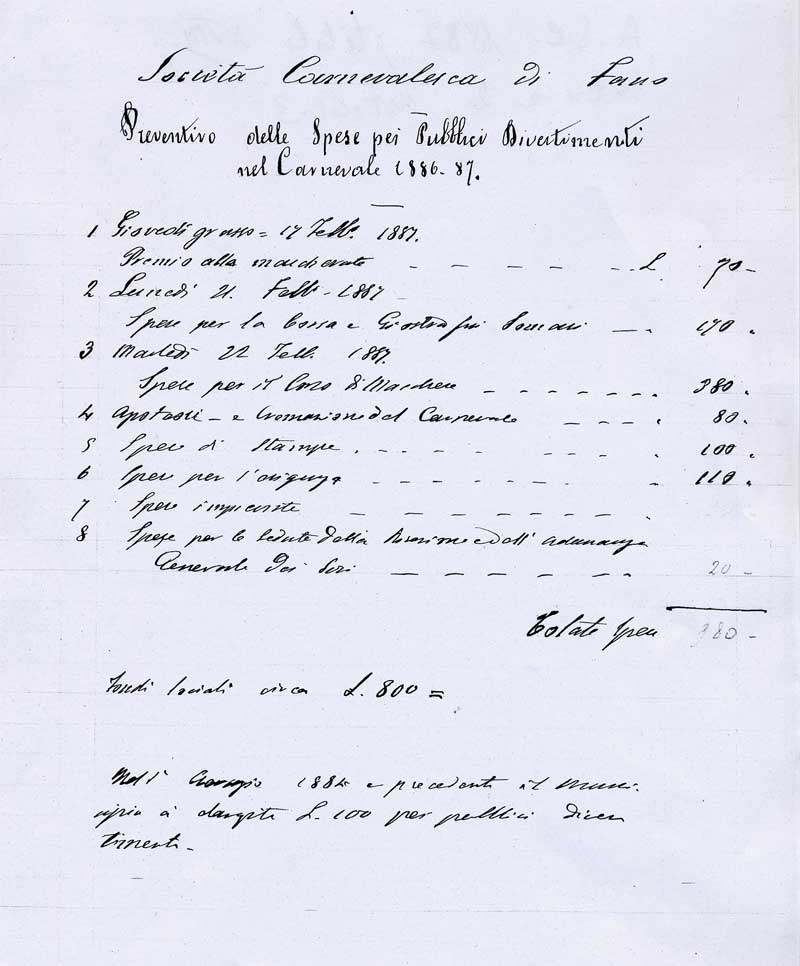 Società Carnevalesca di Fano
Preventivo delle Spese pei Pubblici Divertimenti
nel Carnevale 1886-87.
1 Giovedì grasso = 17 Febb. 1887.
Premio alla mascherate — — — — — . L. 70 —
2 Lunedì 21. Febb. - 1887
Spese per la Corsa e Giostra pei Somari — — . 170 .
3 Martedì 22 Febb. 1887.
Spese per il Corso di Maschere — — — — — . . 380 .
4 Apoteosi — e Cremazione del Carnevale — — — . 80 .
5 Spese di Stampe . — — — — — . 100 .
6 Spese per — — — — — . 110 .
7 Spese impreviste — — — — — — .
8 Spese per le Sedute della e dell' adunanza
Generale dei Soci — — — — — . . 20 —
Totale Spese 980 —
Fondi sociali circa L. 800 =
Nell' 1884 e precedenti il Muni-
cipio à L. 100 per pubblici diver
timenti -